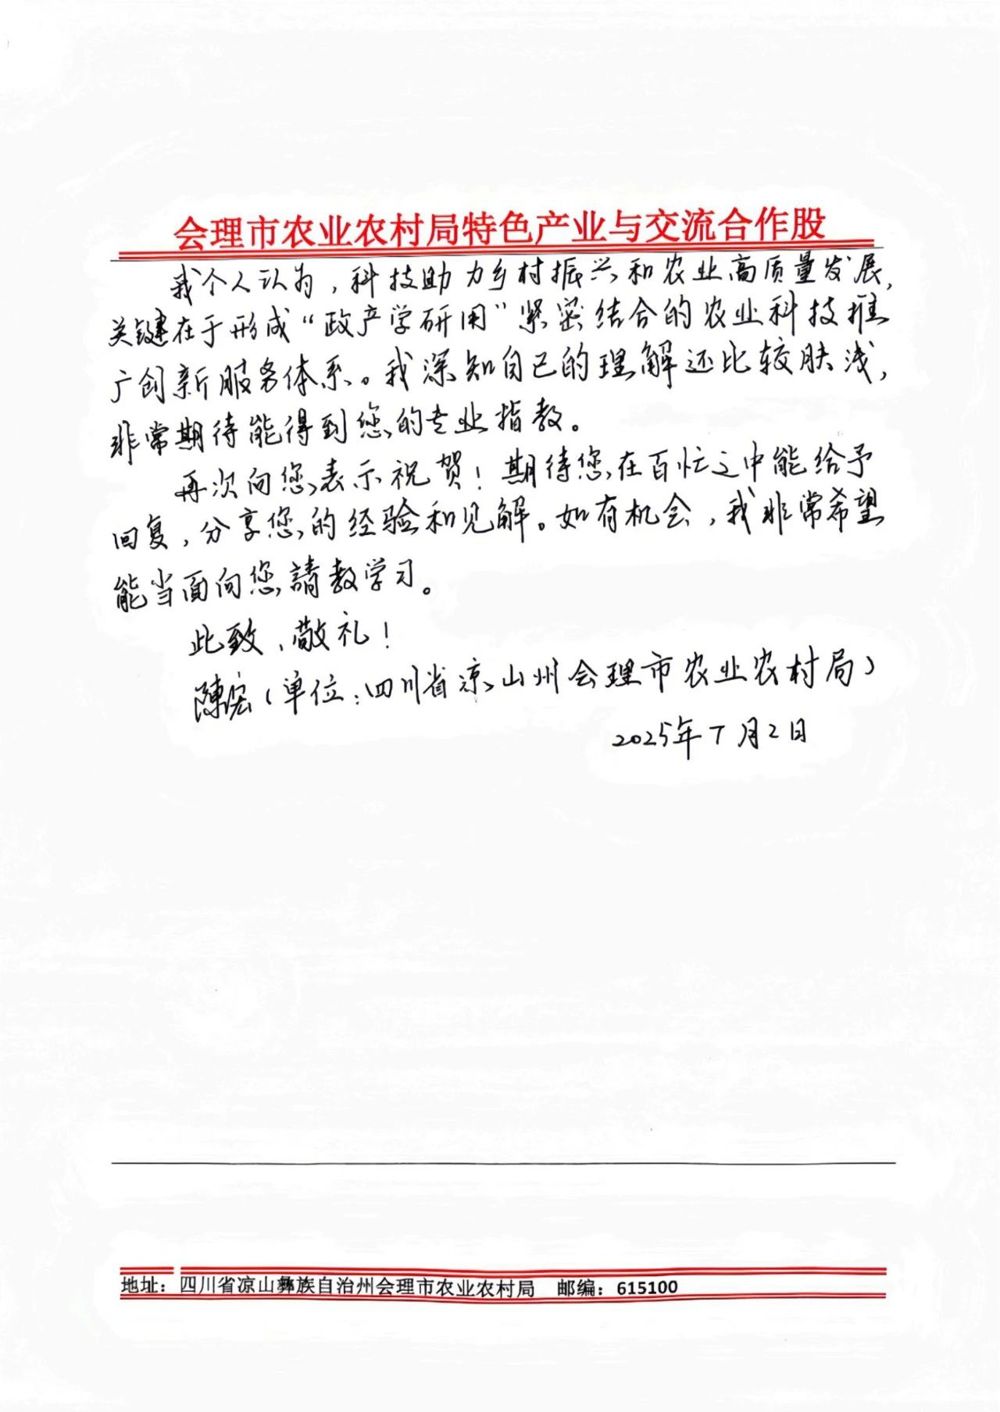 会理市农业农村局特色产业与交流合作股
我个人认为，科技助力乡村振兴和农业高质量发展，
关键在于形成“政产学研用”紧密结合的农业科技推
广创新服务体系。我深知自己的理解还比较肤浅，
非常期待能得到您的专业指教。
再次向您表示祝贺！期待您在百忙之中能给予
回复，分享您的经验和见解。如有机会，我非常希望
能当面向您請教学习。
此致、敬礼！
陳宏（单位：四川省凉山州会理市农业农村局）
2025年7月2日
地址：四川省凉山彝族自治州会理市农业农村局 邮编：615100